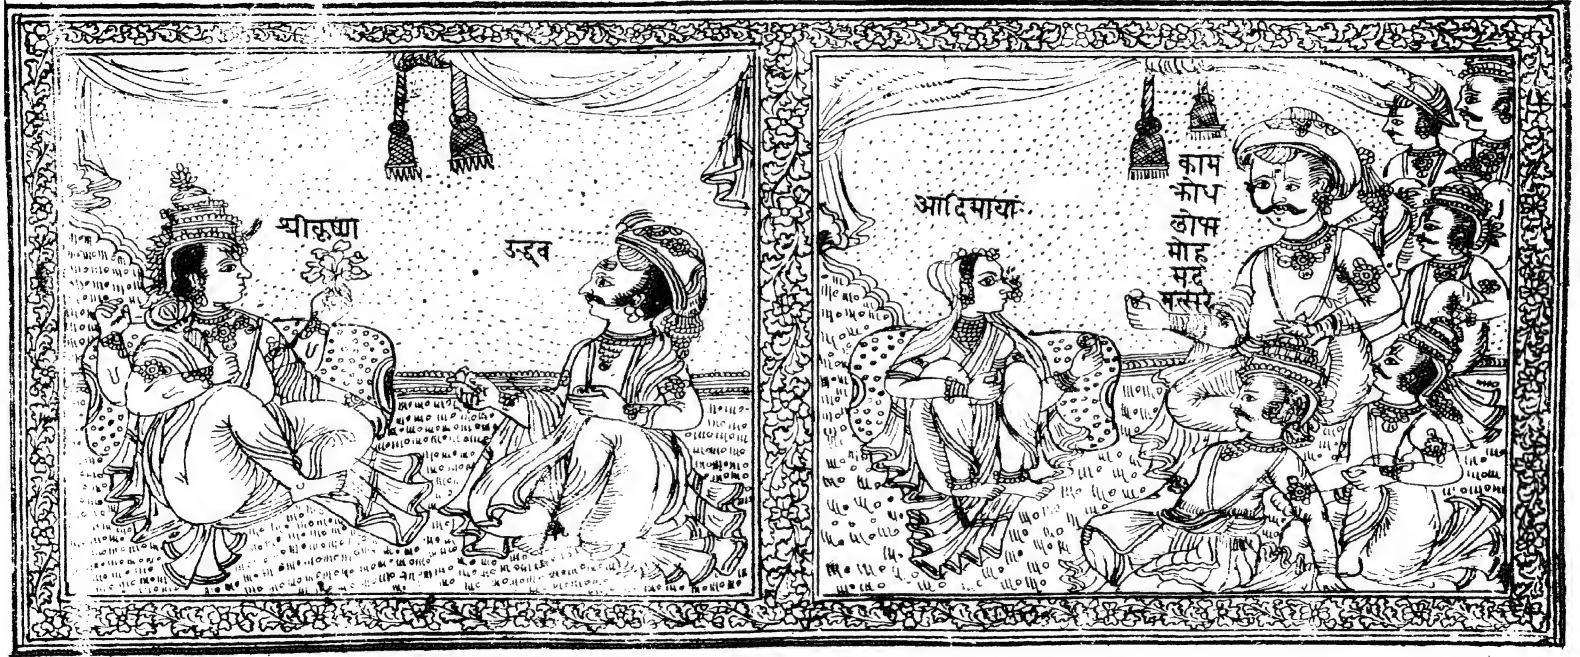 श्रीकृष्ण
उद्धव
आदिमाया
काम
क्रोध
लोभ
मोह
मद
मत्सर